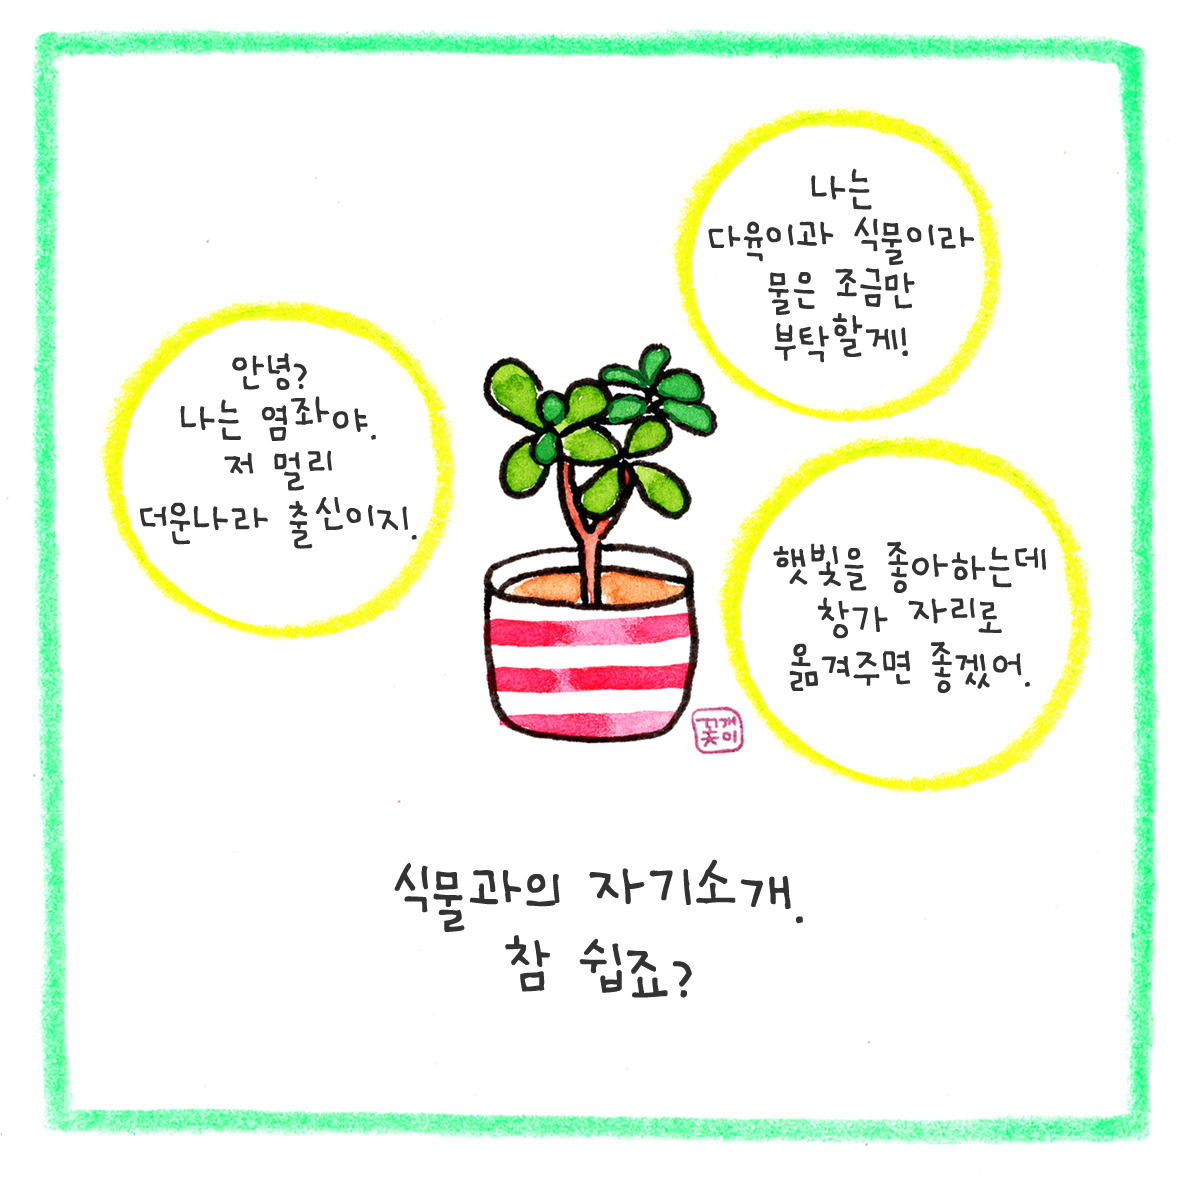 안녕?
나는 염좌야.
저 멀리
더운나라 출신이지.
나는
다육이과 식물이라
물은 조금만
부탁할게!
햇빛을 좋아하는데
창가 자리로
옮겨주면 좋겠어.
꽃개미
식물과의 자기소개.
참 쉽죠?